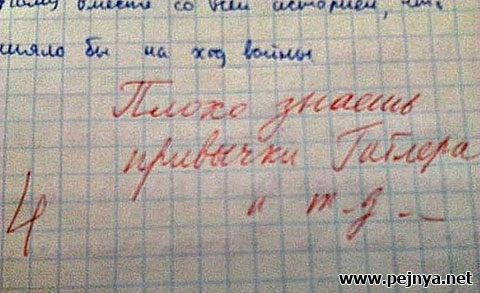 вместе со всей историей, что
шляло бы на ход войны
Плохо знаешь
привычки Гитлера
и т-д--
4
www.pejnya.net